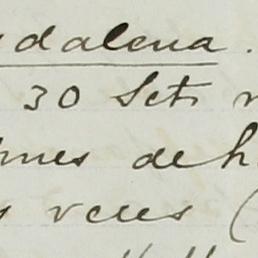 dalena.
30 Set
mes de h
veces (